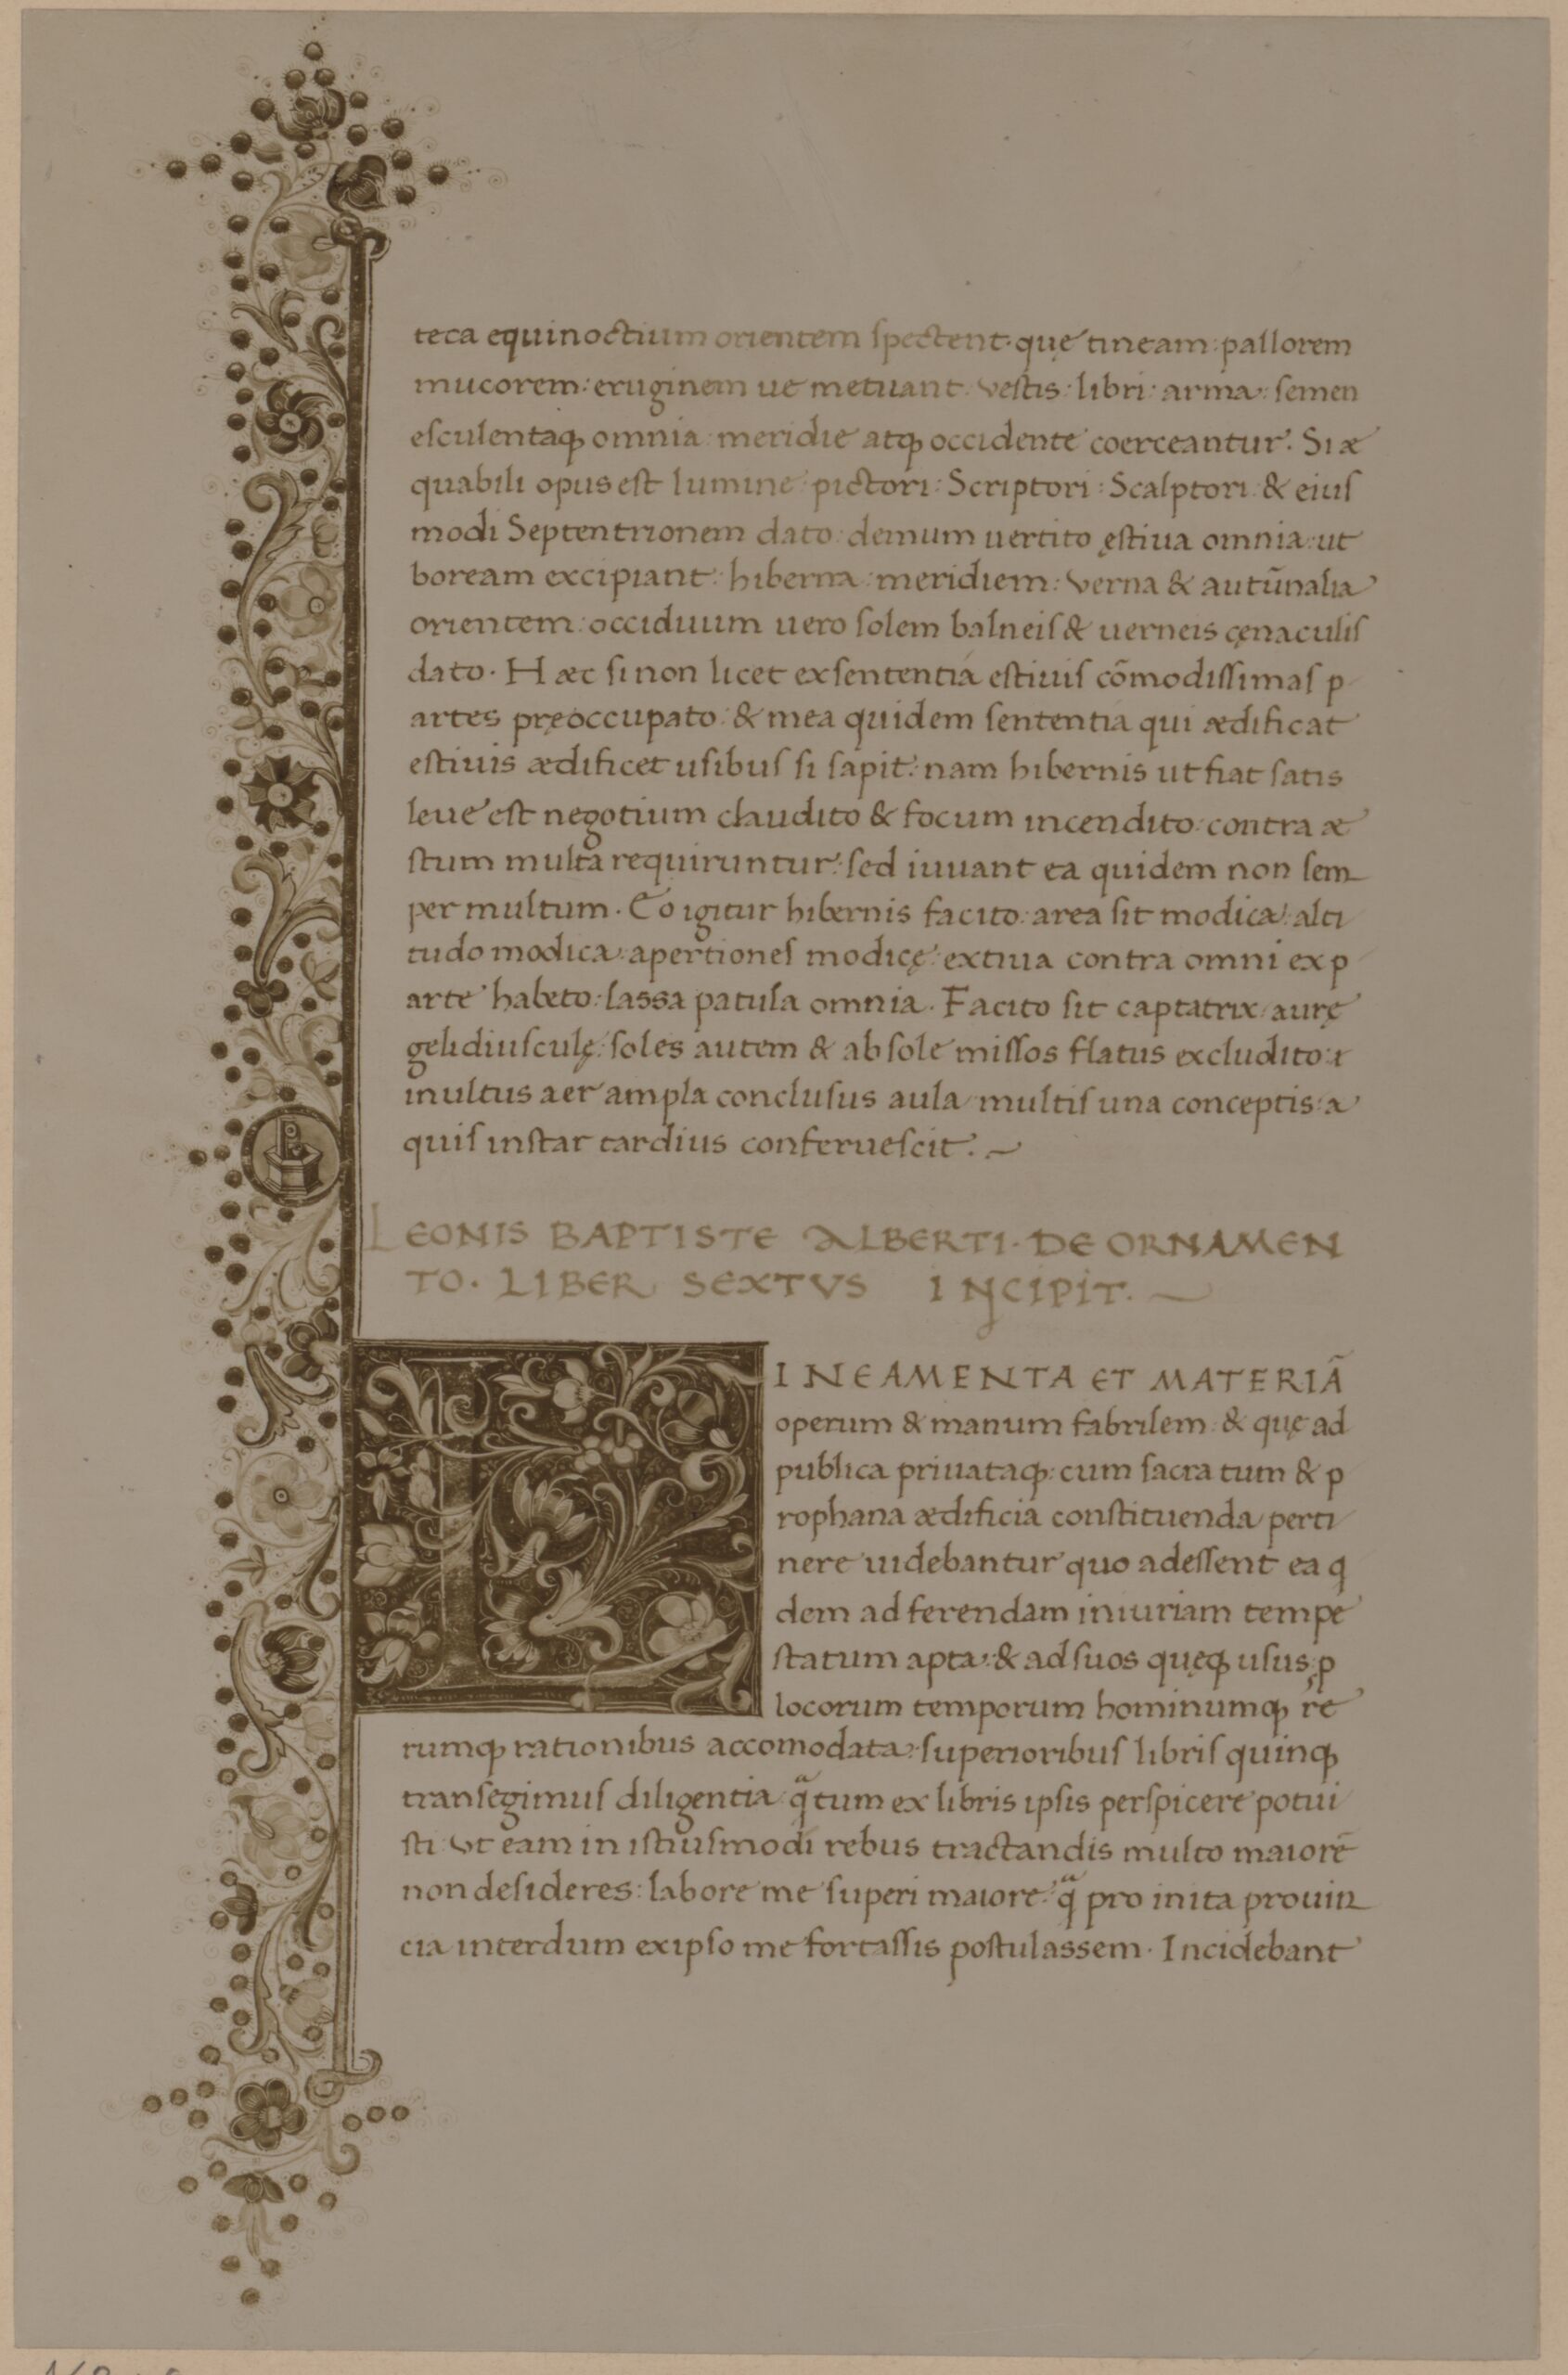 teca equinoctium orientem spectent: quę tineam: pallorem
mucorem: eruginem ue metuant: vestis: libri: arma: semen
esculentaqꝫ omnia: meridie atqꝫ occidente coerceantur. Si æ
quabili opus est lumine: pictori: Scriptori: Scalptori: & eius
modi Septentrionem dato: demum uertito ęstiua omnia: ut
boream excipiant: hiberna: meridiem: verna & autũnalia
orientem: occiduum uero solem balneis & uerneis cęnaculis
dato. Hæc si non licet ex sententia estiuis cõmodissimas p
artes pręoccupato: & mea quidem sententia qui ædificat
estiuis ædificet usibus si sapit: nam hibernis ut fiat satis
leue est negotium claudito & focum incendito: contra æ
stum multa requiruntur: sed iuuant ea quidem non sem
per multum. Eo igitur hibernis facito: area sit modica: alti
tudo modica: apertiones modicę: extiua contra omni ex p
arte habeto: lassa patula omnia. Facito sit captatrix aurę
gelidiusculę: soles autem & ab sole missos flatus excludito: i
inultus aer ampla conclusus aula multis una conceptis: a
quis instar tardius conferuescit.
LEONIS BAPTISTE ALBERTI. DE ORNAMEN
TO. LIBER SEXTVS INCIPIT.
LINEAMENTA ET MATERIÃ
operum & manum fabrilem: & quę ad
publica priuataqꝫ: cum sacra tum & p
rophana ædificia constituenda perti
nere uidebantur quo adessent ea q
dem ad ferendam iniuriam tempe
statum apta: & ad suos quęqꝫ usus: p
locorum temporum hominumqꝫ re
rumqꝫ rationibus accomodata: superioribus libris quinqꝫ
transegimus diligentia: qͣtum ex libris ipsis perspicere potui
sti: vt eam in istiusmodi rebus tractandis multo maiorē
non desideres: labore me superi maiore: qͣ pro inita prouin
cia interdum ex ipso me fortassis postulassem. Incidebant